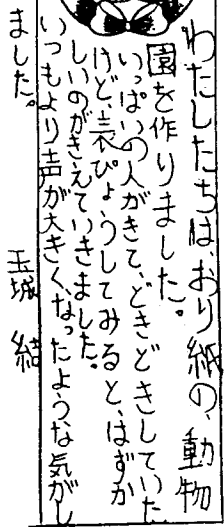 わたしたちは、おり紙の、動物
園を作りました。
いっぱいの人がきて、どきどきしていた
けど、表ぴょうしてみると、はずか
しいのがきえていきました。
いつもより声が大きくなったような気がし
ました。
玉城 結